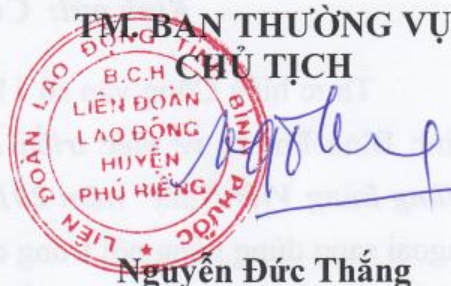 TM. BAN THƯỜNG VỤ
CHỦ TỊCH
LIÊN ĐOÀN LAO ĐỘNG TỈNH BÌNH PHƯỚC
B.C.H
LIÊN ĐOÀN
LAO ĐỘNG
HUYỆN
PHÚ RIỀNG
Nguyễn Đức Thắng